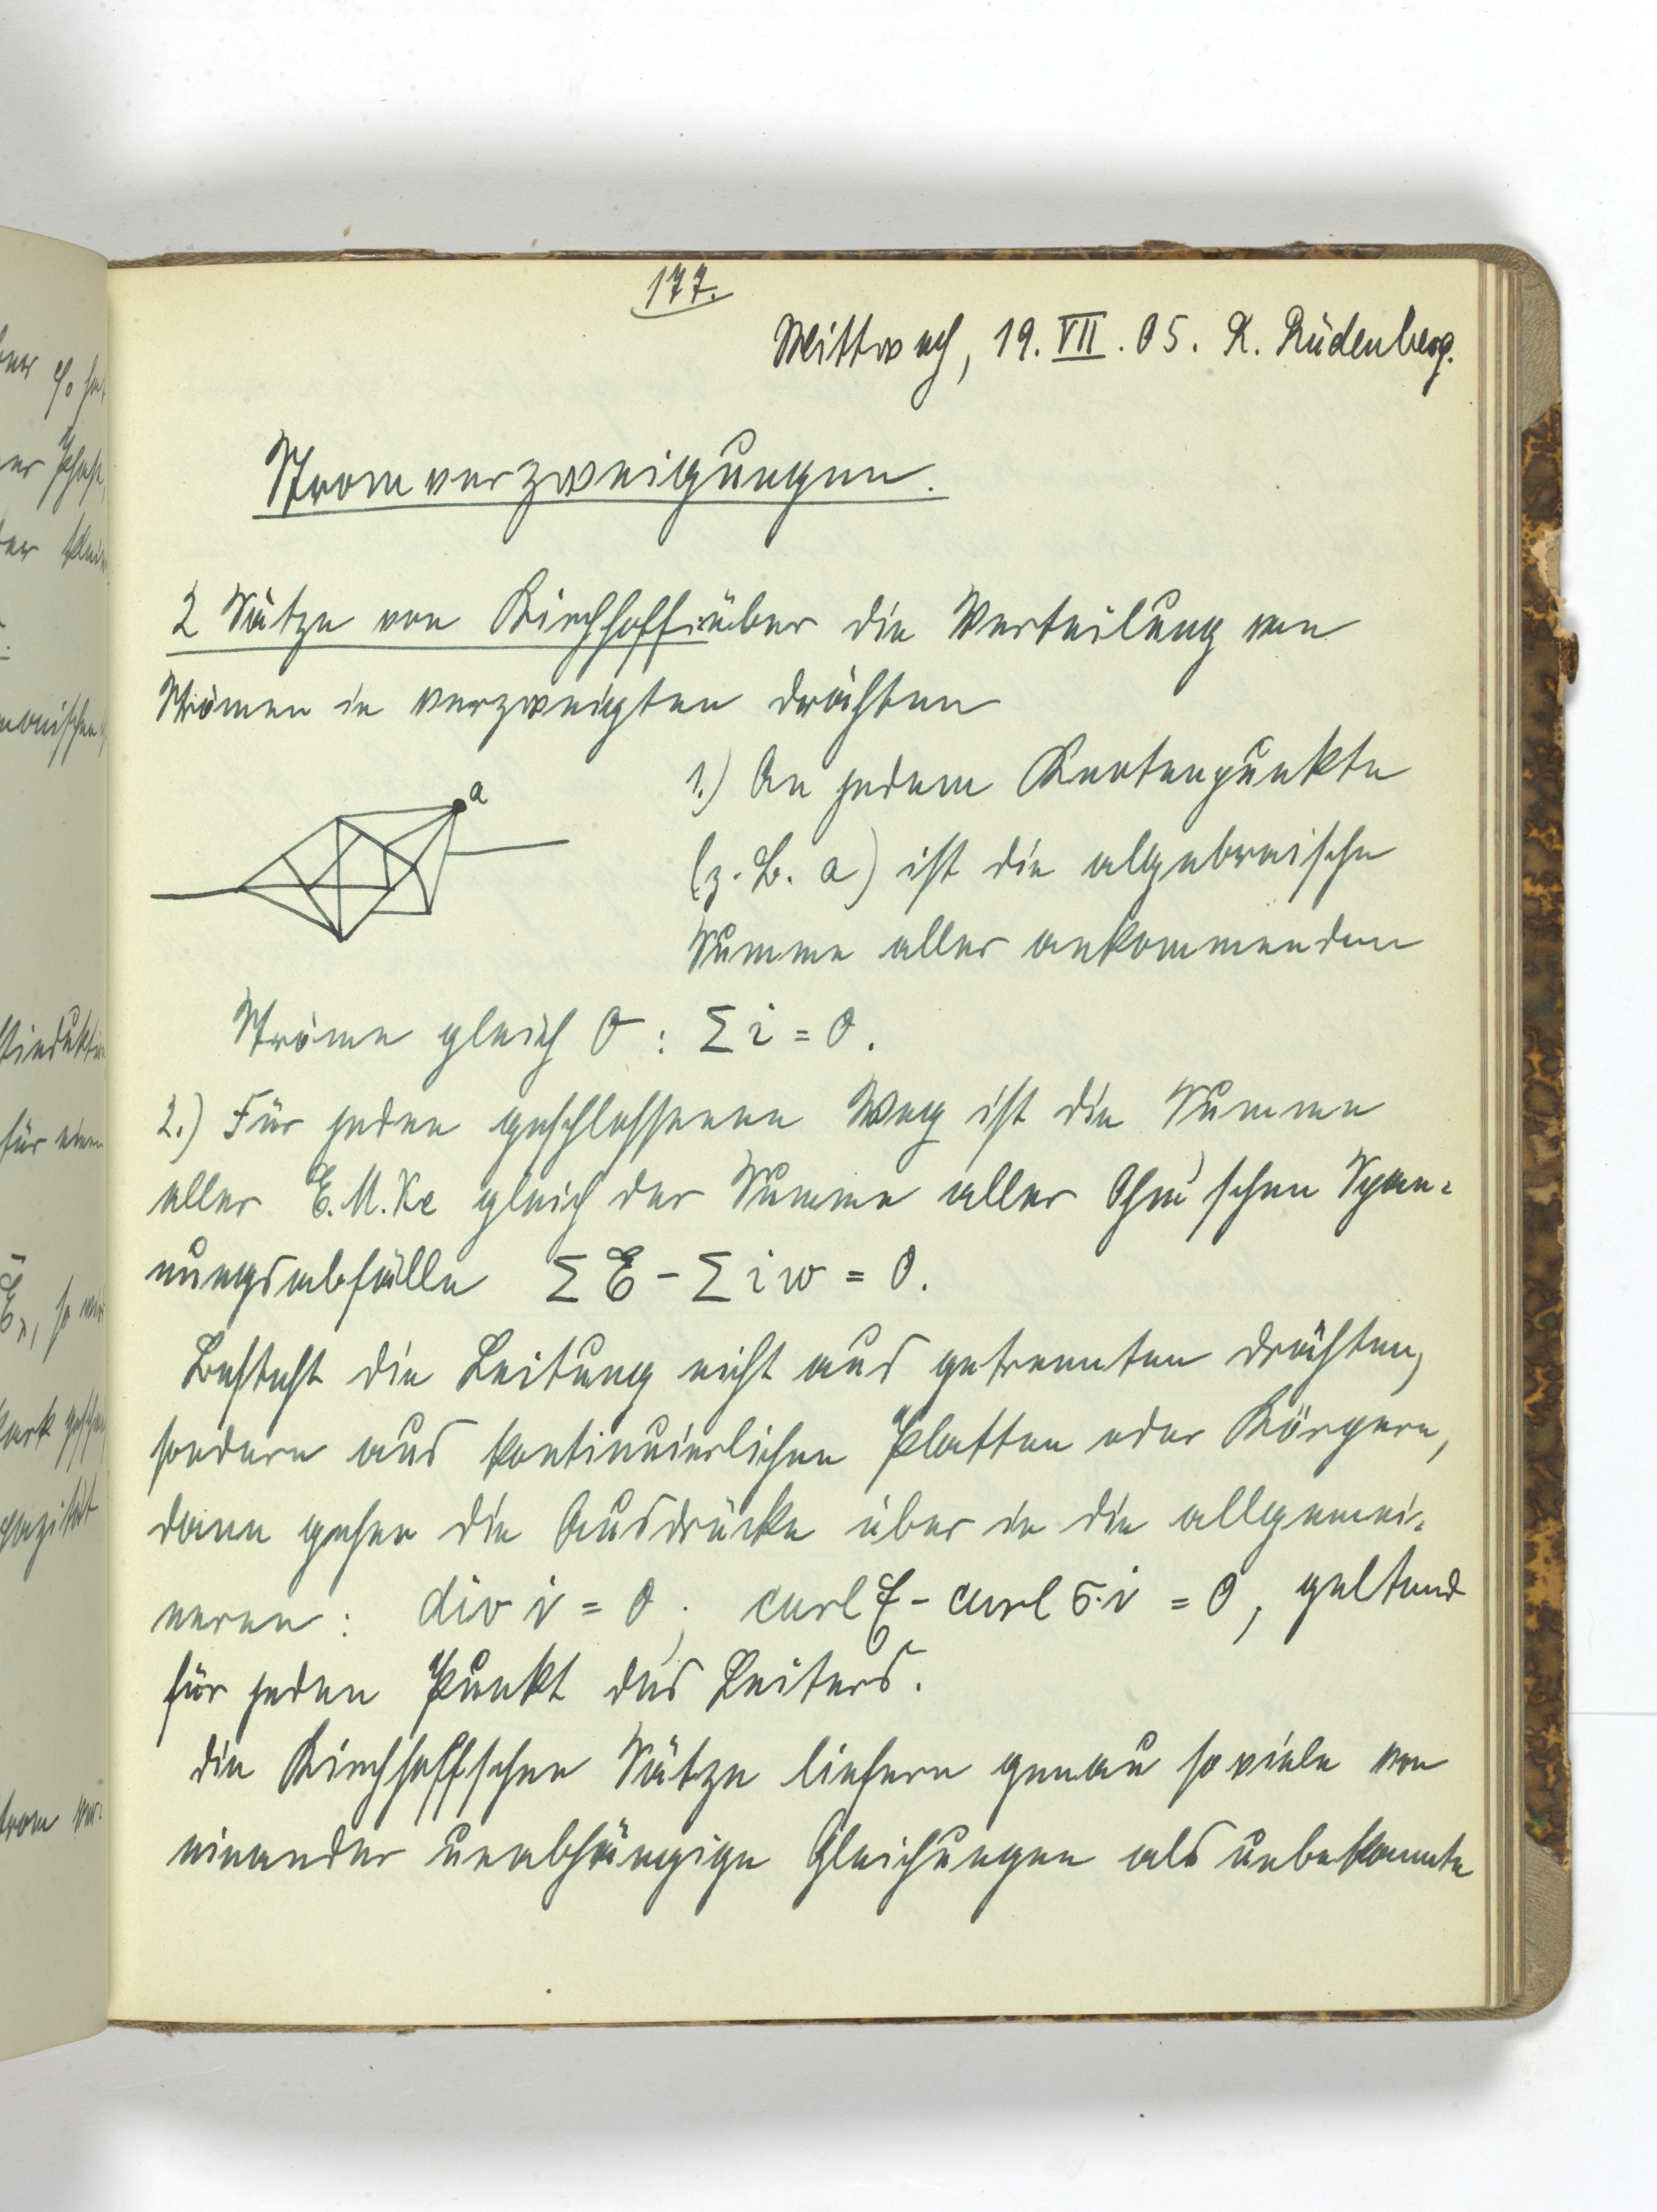 177.
Mittwoch, 19. VII. 05. R. Rüdenberg.
Stromverzweigungen.
2 Sätze von Kirchhoff über die Verteilung von
Strömen in verzweigten Drähten
a
1.) An jedem Knotenpunkte
(z. B. a) ist die algebraische
Summe aller ankommenden
Ströme gleich 0 : Σ i = 0.
2.) Für jeden geschlossenen Weg ist die Summe
aller E.M.Ke gleich der Summe aller Ohm'schen Span-
nungsabfälle Σ E - Σ i w = 0.
Besteht die Leitung nicht aus getrennten Drähten,
sondern aus kontinuierlichen Platten oder Körpern,
dann gehen die Ausdrücke über in die allgemei-
neren : div i = 0 ; curl E - curl σ·i = 0, geltend
für jeden Punkt des Leiters.
Die Kirchhoffschen Sätze liefern genau so viele von
einander unabhängige Gleichungen als unbekannte